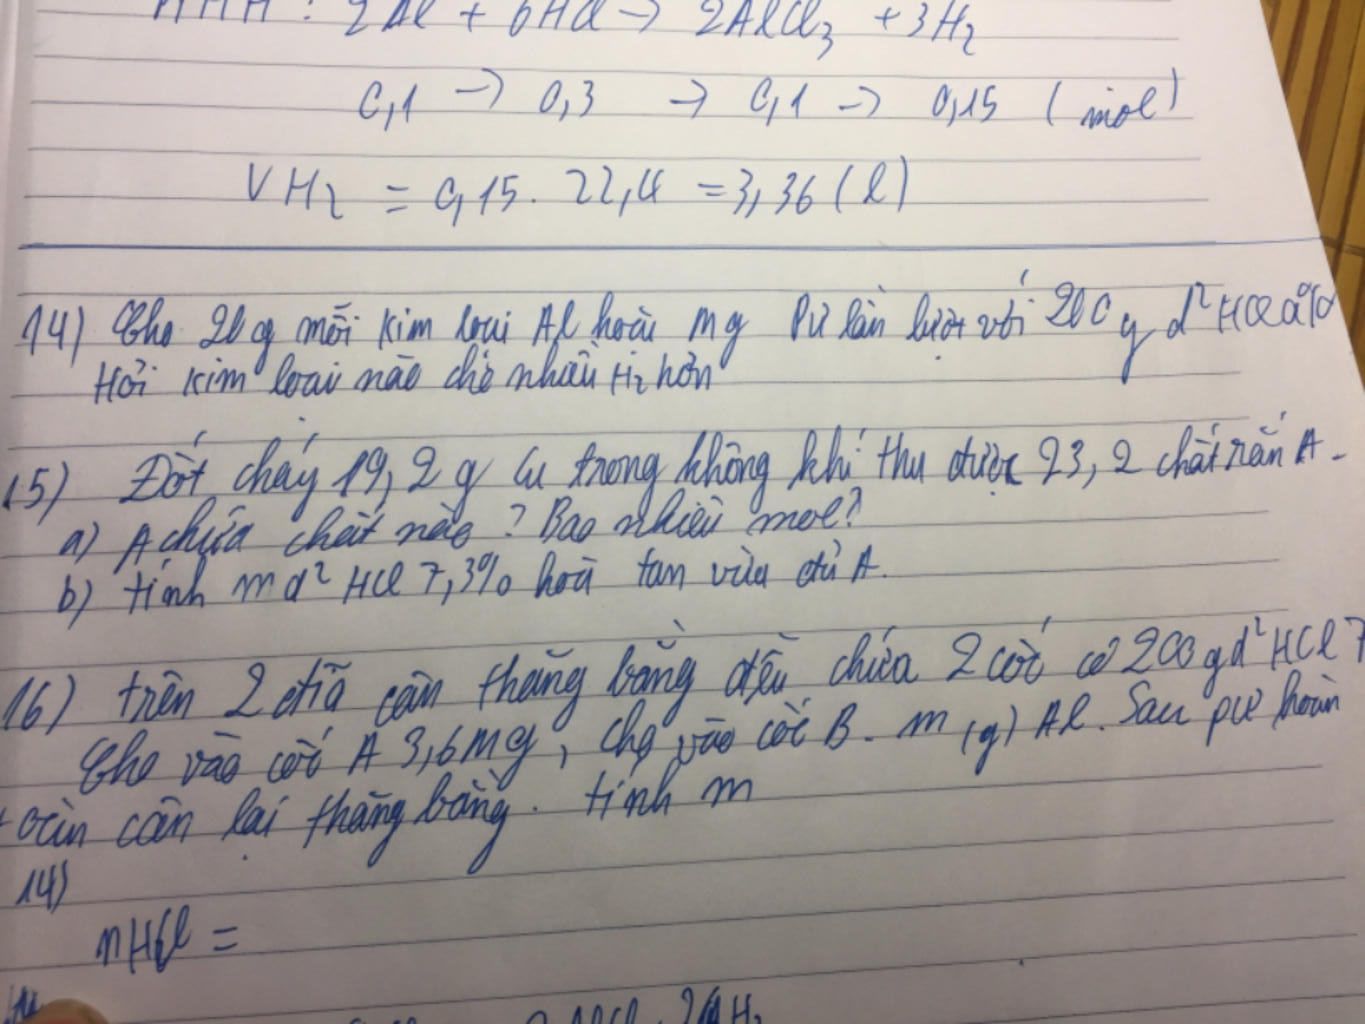 2Al + 6HCl → 2AlCl3 + 3H2
0,1 → 0,3 → 0,1 → 0,15 (mol)
VH2 = 0,15. 22,4 = 3,36 (l)
14) Cho 20g mỗi kim loại Al hoặc Mg Pứ lần lượt với 200g d² HCl
Hỏi kim loại nào cho nhiều H2 hơn
15) Đốt cháy 19,2g Cu trong không khí thu được 23,2 chất rắn A.
a) A chứa chất nào? Bao nhiêu mol?
b) tính m d² HCl 7,3% hoà tan vừa đủ A.
16) trên 2 đĩa cân thăng bằng đều chứa 2 cốc có 200g d² HCl 7
Cho vào cốc A 3,6 Mg, cho vào cốc B. m(g) Al. Sau pư hoàn
toàn cân lại thăng bằng. tính m
14)
nHCl =